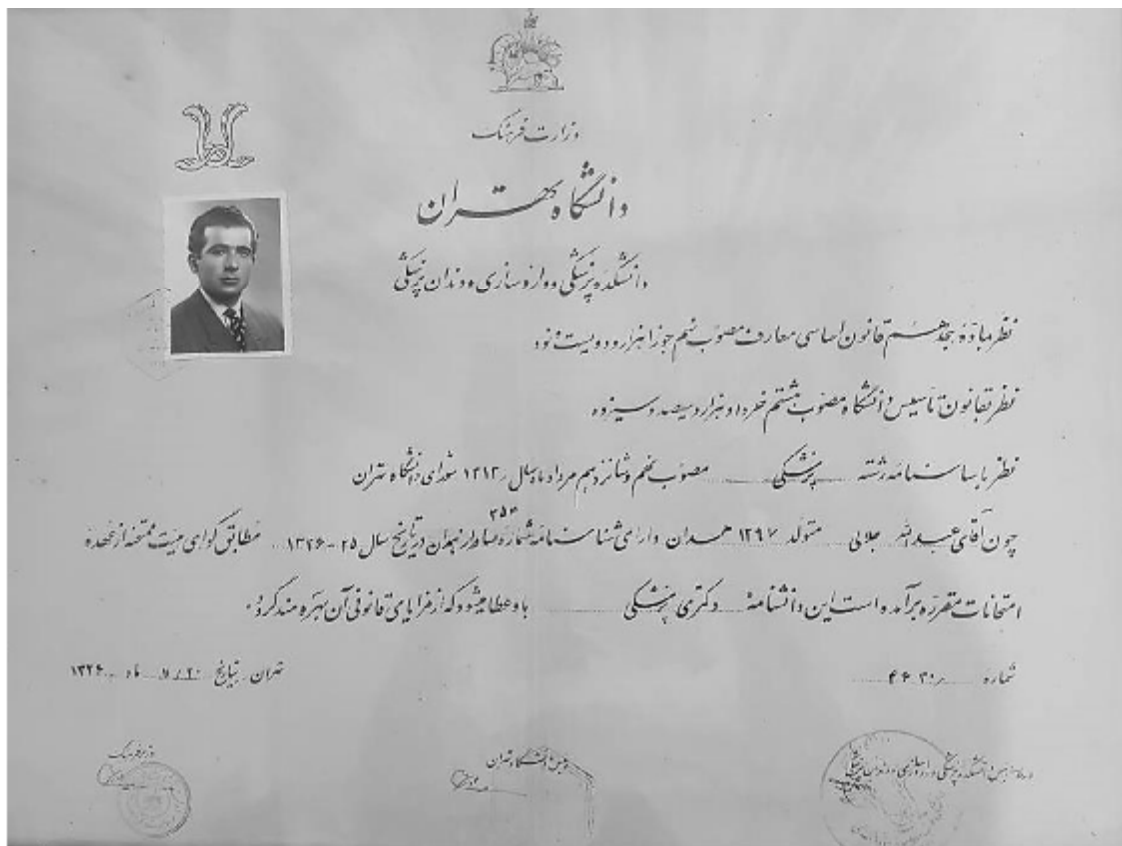 وزارت فرهنگ
دانشگاه تهران
دانشکده پزشکی و داروسازی و دندان پزشکی
نظر بمادهٔ هجدهم قانون اساسی معارف مصوب نهم جوزا هزار و دویست و نود
نظر بقانون تأسیس دانشگاه مصوب هشتم خرداد هزار و سیصد و سیزده
نظر باساسنامه رشته پزشکی مصوب نهم و شانزدهم مرداد ماه سال ۱۳۱۳ شورای دانشگاه تهران
چون آقای عبدالله جلالی متولد ۱۲۹۷ همدان دارای شناسنامه شماره ۲۵۳ صادر از همدان در تاریخ سال ۲۵-۱۳۲۶ مطابق گواهی هیئت ممتحنه از عهده
امتحانات مقرره برآمده است این دانشنامهٔ دکتری پزشکی باو عطا میشود که از مزایای قانونی آن بهره مند گردد.
شماره تهران بتاریخ ماه ۱۳۲۶
رئیس دانشکده پزشکی و داروسازی و دندان پزشکی
رئیس دانشگاه تهران
وزیر فرهنگ